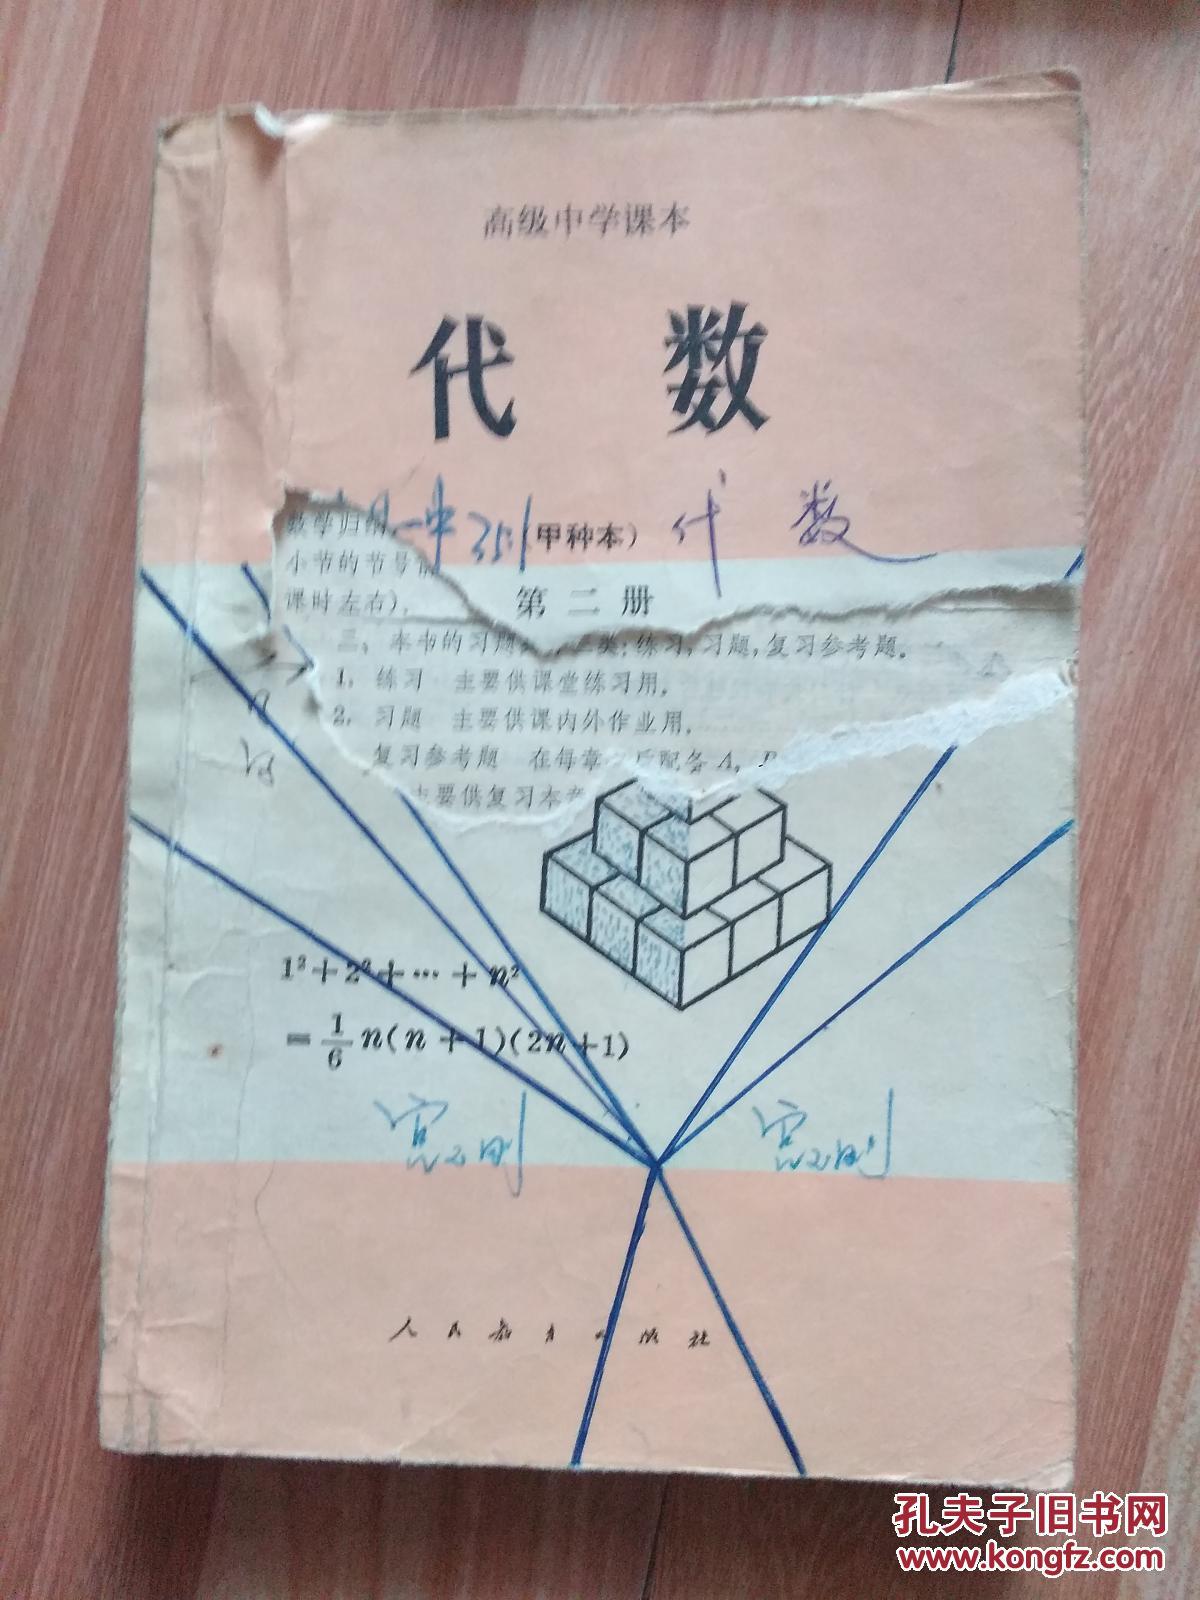 高级中学课本
代 数
数学归纳
一中 351 (甲种本) 代 数
小节的节号
课时左右).
第二册
三、本书的习题 类:练习,习题,复习参考题.
1. 练习 主要供课堂练习用.
2. 习题 主要供课内外作业用.
复习参考题 在每章 后配备 A,
主要供复习本章
1²+2²+…+n²
=1/6 n(n+1)(2n+1)
人民教育出版社
孔夫子旧书网
www.kongfz.com